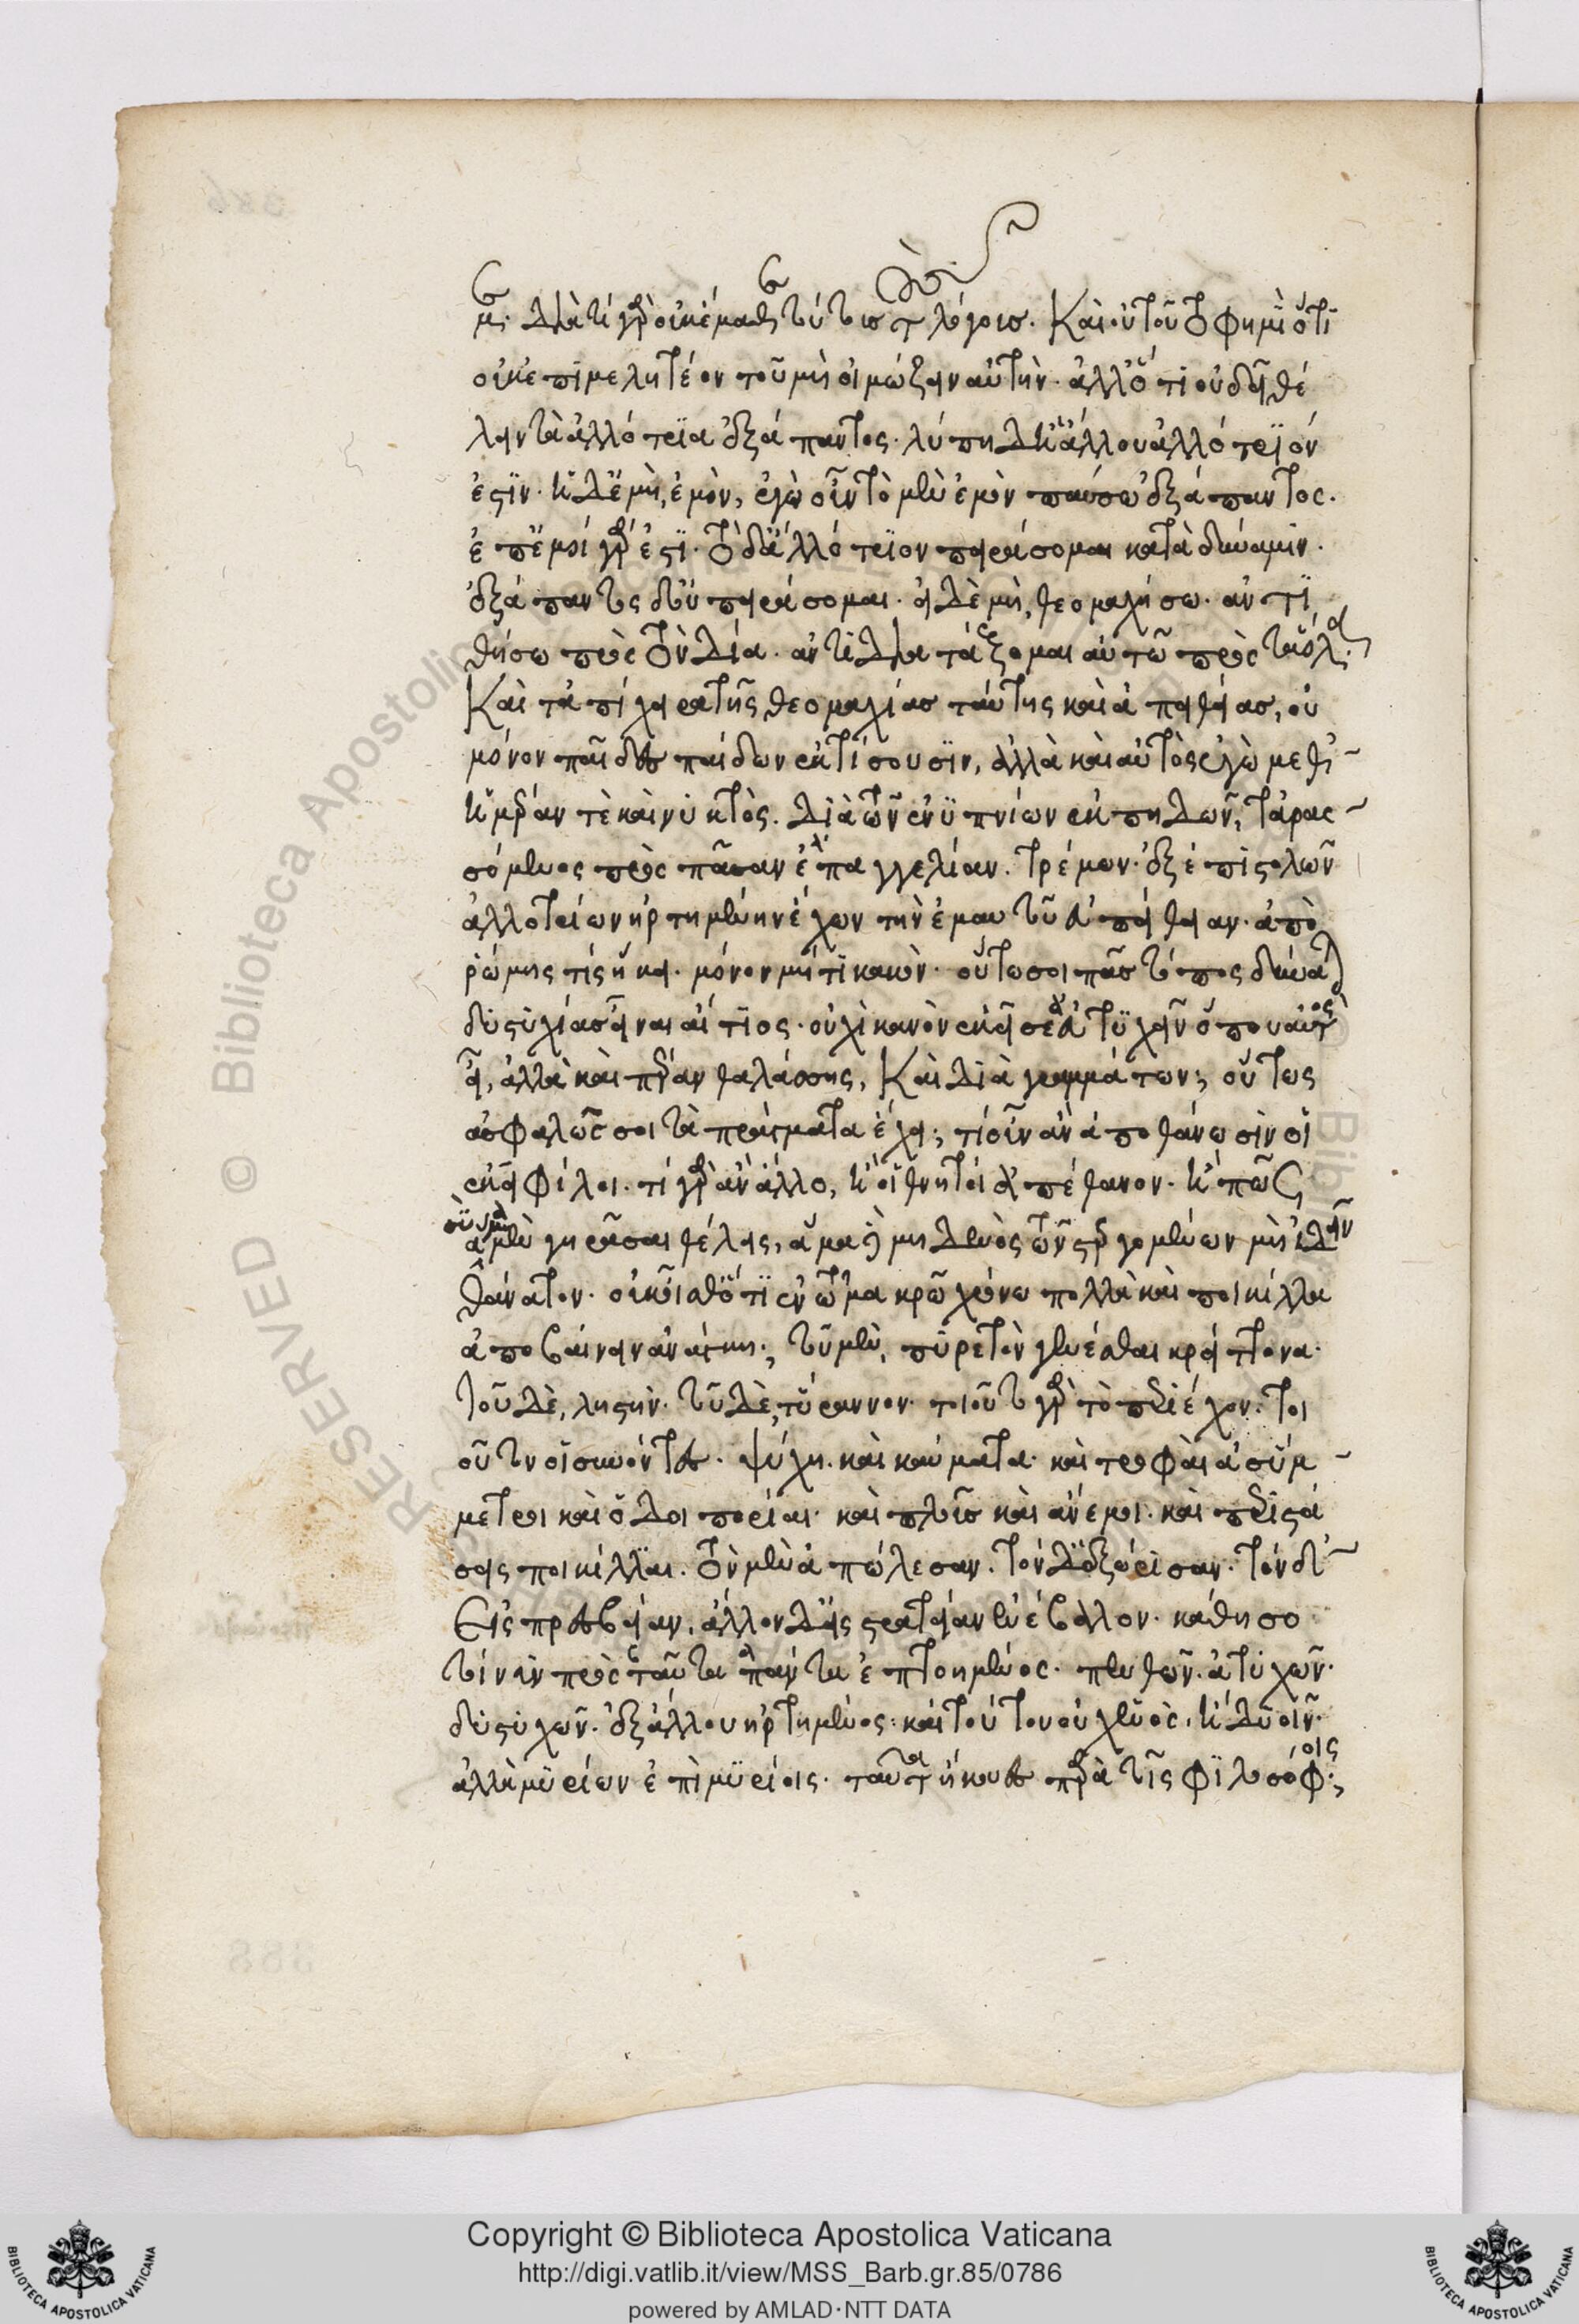 μ· Διὰ τί γὰρ οὐκ ἔμαθε τούτους τ λόγους. Καὶ οὐ τοῦτο φημὶ ὅτι
οὐκ ἐπιμελητέον τοῦ μὴ οἰμώζειν αὐτὴν· ἀλλ' ὅτι οὐ δεῖ θέ
λειν τὰ ἀλλότρια ἐξ ἅπαντος. λύπη δὲ ἡ ἄλλου ἀλλότριόν
ἐστιν. ἡ δ' ἐμὴ, ἐμὸν, ἐγὼ οὖν τὸ μὲν ἐμὸν παύσω ἐξ ἅπαντος.
ἐπ' ἐμοί γάρ ἐστι. τὸ δ' ἀλλότριον πειράσομαι κατὰ δύναμιν.
ἐξ ἅπαντος δ' οὐ πειράσομαι. εἰ δὲ μὴ, θεομαχήσω. ἀντι
θήσω πρὸς τὸν Δία. ἀντιδιατάξομαι αὐτῷ πρὸς τὰ ὅλα.
Καὶ τἀπίχειρα τῆς θεομαχίας ταύτης καὶ ἀπειθείας, οὐ
μόνον παῖδες παίδων ἐκτίσουσιν, ἀλλὰ καὶ αὐτὸς ἐγὼ μεθ'
ἡμέραν τὲ καὶ νυκτὸς. Διὰ τῶν ἐνυπνίων ἐκπηδῶν, ταρας
σόμενος πρὸς πᾶσαν ἐπαγγελίαν. τρέμων. ἐξ ἐπιστολῶν
ἀλλοτρίων ἠρτημένην ἔχων τὴν ἐμαυτοῦ ἀπάθειαν. ἀπὸ
ῥώμης τίς ἥκει. μόνον μή τι κακὸν. οὕτω σοι πᾶς τόπος δύναται
δυστυχίας εἶναι αἴτιος. οὐχ ἱκανὸν ἐκεῖ σε ἀτυχεῖν ὅπου αὐτὸς
εἶ, ἀλλὰ καὶ πέραν θαλάσσης, Καὶ Διὰ γραμμάτων; οὕτως
ἀσφαλῶς σοι τὰ πράγματα ἔχει; τί οὖν ἂν ἀποθάνωσιν οἱ
ἐκεῖ φίλοι. τί γὰρ ἂν ἄλλο, ἢ οἱ θνητοὶ ἀπέθανον. ἢ πῶς
ἅμα μὲν γηρᾶσαι θέλεις, ἅμα μηδενὸς τῶν στεργομένων μὴ ἰδεῖν
θάνατον. οὐκ οἶσθ' ὅτι ἐν τῷ μακρῷ χρόνῳ πολλὰ καὶ ποικίλλα
ἀποβαίνειν ἀνάγκη; τοῦ μὲν, πυρετὸν γενέσθαι κρείττονα.
τοῦ δὲ, λῃστὴν. τοῦ δὲ, τύραννον. τοιοῦτο γὰρ τὸ περιέχον. τοι
οῦτοι οἱ συνόντες. ψύχη. καὶ καύματα. καὶ τροφὰι ἀσύμ
μετροι καὶ ὁδοιπορίαι. καὶ πλοῦς καὶ ἄνεμοι. καὶ περιστά
σεις ποικίλλαι. τὸν μὲν ἀπώλεσαν. τὸν δ' ἐξώρισαν. τὸν δ'
εἰς πρεσβείαν, ἄλλον δ' εἰς στρατείαν ἐνέβαλον. κάθησο
τοίνυν πρὸς ταῦτα πάντα ἐπτοημένος. πενθῶν. ἀτυχῶν.
δυστυχῶν. ἐξ ἄλλου ἠρτημένος. καὶ τούτου οὐχ ἑνὸς, ἢ δυοῖν.
ἀλλὰ μυρίων ἐπὶ μυρίοις. ταῦτα ἤκουες παρὰ τοῖς φιλοσόφοις;